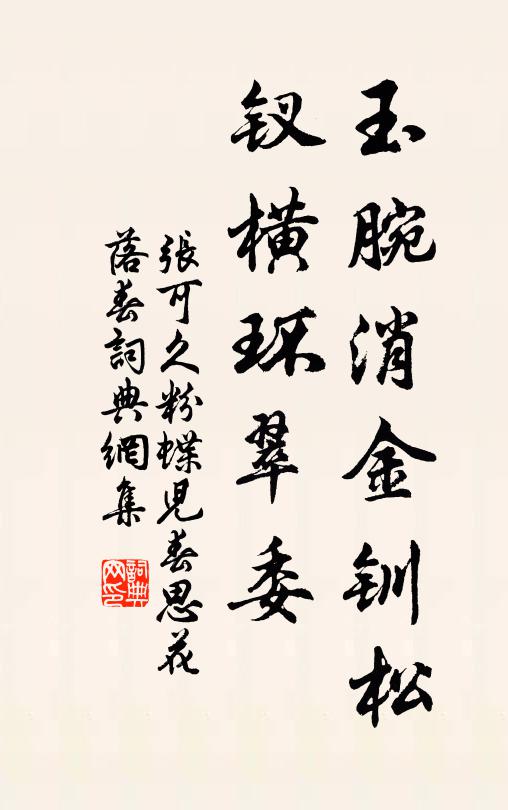 玉腕消金钏松
钗横环翠委
張可久粉蝶児春思花
落春詞典網集
詞典网印